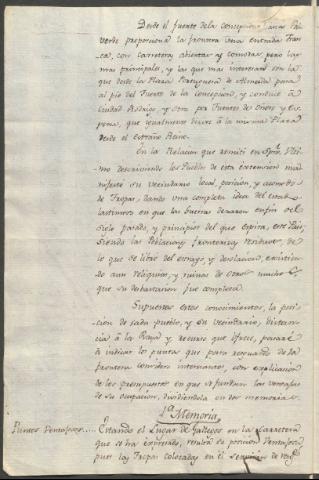 Desde el fuerte dela Concepcion hasta Val-
verde proporciona la frontera una entrada Fran-
ca, con carreteras abiertas y comodas, pero las
mas principales, y las que mas interesan son la
que desde la Plaza Portuguesa de Almeida pasa
al pie del Fuerte de la Concepcion, y conduce à
Ciudad Rodrigo, y otra por Fuentes de Oñoro y Es-
peja, que igualmente dirige à la misma Plaza
desde el extraño Reino.
En la Relacion que remití en
mo describiendo los Pueblos de esta extension ma-
nifesté su vecindario local, posicion, y acomodo
de Tropas, dando una completa idea del estado
lastimoso en que las guerras dexaron en fin del
siglo pasado, y principios del que espira, este Pais,
siendo las Poblaciones fronterizas
lo que se libró del estrago, y desolacion, existien-
do aun reliquias, y ruinas de otros muchos
que su debastacion fue completa.
Supuestos estos conocimientos, la posi-
cion de cada pueblo, y su vecindario, distan-
cia à la Raya y recurso que ofrece, pasaré
à indicar los puntos que para resguardo de la
frontera considero interesantes, con explicacion
de los presupuestos en que se fundan las ventajas
de su ocupacion, dividiendola en dos memorias.
1ª Memoria
Puntos Ventajosos.... Estando el Lugar de Gallegos en la Carretera
que se ha expresado, resulta su posicion ventajosa,
pues las Tropas colocadas en él